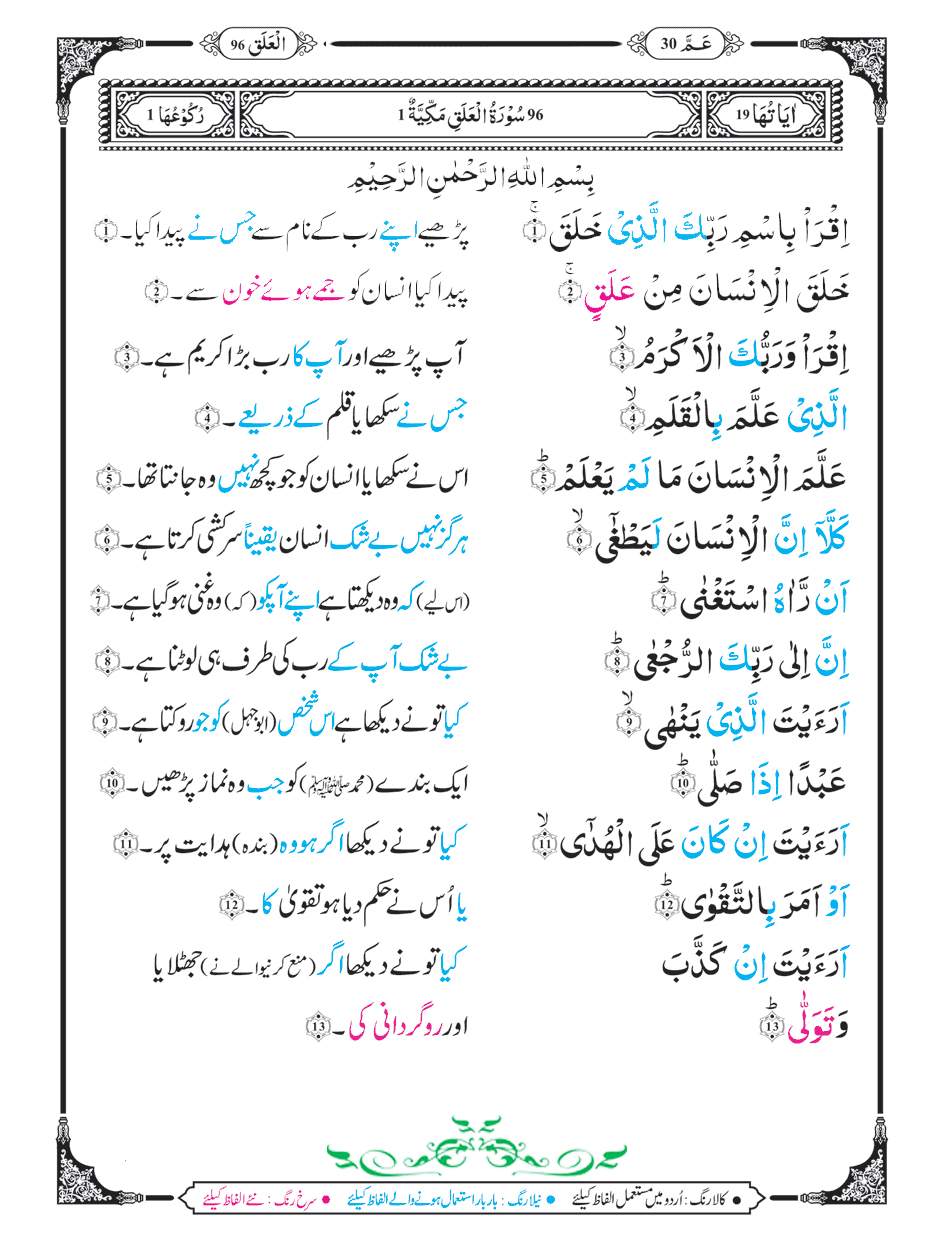 عَمَّ 30
الْعَلَق 96
اٰيَاتُهَا 19
96 سُوْرَةُ الْعَلَقِ مَكِّيَّةٌ 1
رُكُوْعُهَا 1
بِسْمِ اللّٰهِ الرَّحْمٰنِ الرَّحِيْمِ
اِقْرَاْ بِاسْمِ رَبِّكَ الَّذِيْ خَلَقَ ۚ 1
پڑھیے اپنے رب کے نام سے جس نے پیدا کیا۔ 1
خَلَقَ الْاِنْسَانَ مِنْ عَلَقٍ ۚ 2
پیدا کیا انسان کو جمے ہوئے خون سے۔ 2
اِقْرَاْ وَرَبُّكَ الْاَكْرَمُ ۙ 3
آپ پڑھیے اور آپ کا رب بڑا کریم ہے۔ 3
الَّذِيْ عَلَّمَ بِالْقَلَمِ ۙ 4
جس نے سکھایا قلم کے ذریعے۔ 4
عَلَّمَ الْاِنْسَانَ مَا لَمْ يَعْلَمْ ؕ 5
اس نے سکھایا انسان کو جو کچھ نہیں وہ جانتا تھا۔ 5
كَلَّاۤ اِنَّ الْاِنْسَانَ لَيَطْغٰۤى ۙ 6
ہرگز نہیں بے شک انسان یقیناً سرکشی کرتا ہے۔ 6
اَنْ رَّاٰهُ اسْتَغْنٰى ؕ 7
(اس لیے) کہ وہ دیکھتا ہے اپنے آپکو (کہ) وہ غنی ہوگیا ہے۔ 7
اِنَّ اِلٰى رَبِّكَ الرُّجْعٰى ؕ 8
بے شک آپ کے رب کی طرف ہی لوٹنا ہے۔ 8
اَرَءَيْتَ الَّذِيْ يَنْهٰى ۙ 9
کیا تو نے دیکھا ہے اس شخص (ابوجہل) کو جو روکتا ہے۔ 9
عَبْدًا اِذَا صَلّٰى ؕ 10
ایک بندے (محمد ﷺ) کو جب وہ نماز پڑھیں۔ 10
اَرَءَيْتَ اِنْ كَانَ عَلَى الْهُدٰۤى ۙ 11
کیا تو نے دیکھا اگر ہو وہ (بندہ) ہدایت پر۔ 11
اَوْ اَمَرَ بِالتَّقْوٰى ؕ 12
یا اُس نے حکم دیا ہو تقویٰ کا۔ 12
اَرَءَيْتَ اِنْ كَذَّبَ
کیا تو نے دیکھا اگر (منع کرنیوالے نے) جھٹلایا
وَتَوَلّٰى ؕ 13
اور روگردانی کی۔ 13
● کالا رنگ : اُردو میں مستعمل الفاظ کیلئے ● نیلا رنگ : بار بار استعمال ہونے والے الفاظ کیلئے ● سرخ رنگ : نئے الفاظ کیلئے